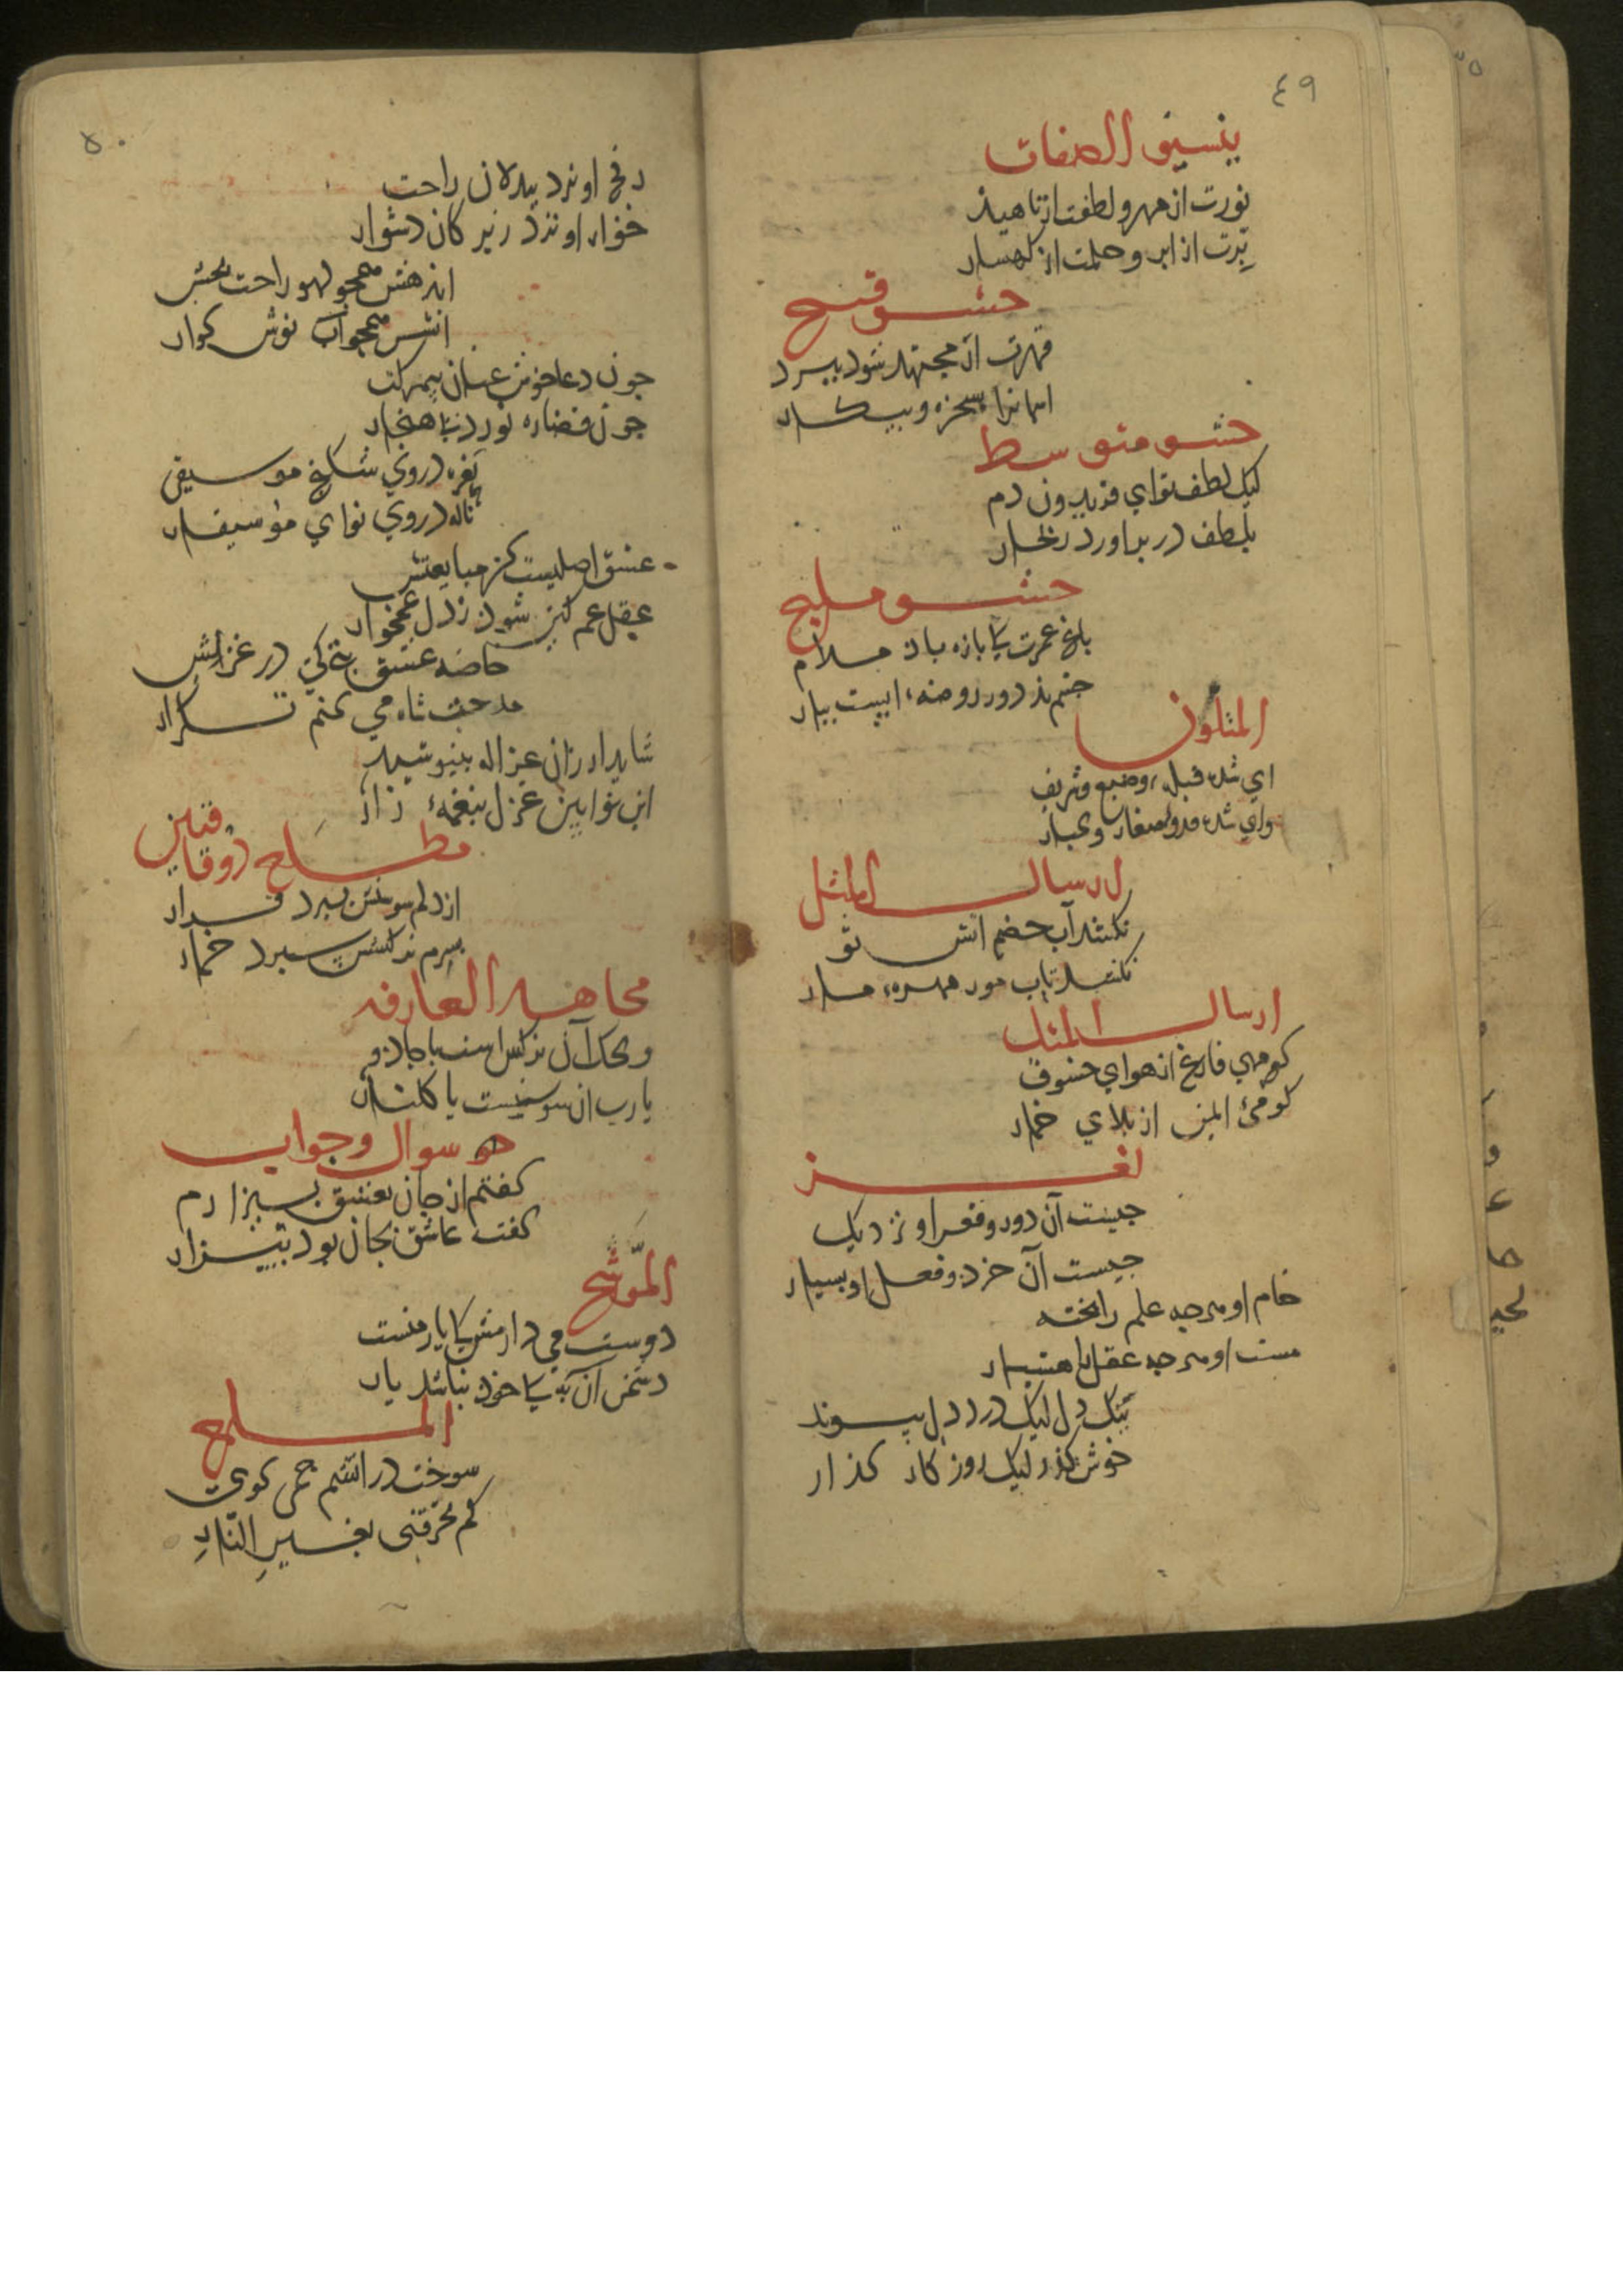 ٤٩
تنسيق الصفات
نورت از مهر و لطفت از ناهيد
برّت از ابر و حلمت از كهسار
حشو قبيح
قهرت ار مجتهد شود ببرد
اسمانرا بسخره و بيكار
حشو متوسط
ليك لطف تو اي فريدون دم
بلطف در براورد ز بحار
حشو مليح
باغ عمرت كا تازه باد مدام
جشم بد دور روضه ايست ببار
المتلون
اي شده قبله وضيع و شريف
واي شده قدوه صغار و كبار
ارسال المثل
نكشد آب خصم اتش تو
نكشد تاب مور مهره مار
ارسال المثلين
كو مهي فارغ از هواي خسوف
كو مئ ايمن از بلاي خمار
لغز
جيست آن دور و قعر او نزديك
جيست آن خرد و فعل او بسيار
خام او هر جه علم را بخته
مست او هر جه عقل را هشيار
تنك دل ليك در دل بيوند
خوش كذر ليك روز كار كذار
٥٠
رنج او نزد بيدلان راحت
خوار او نزد زير كان دشوار
اندهش همجو لهو راحت بخش
اتش همجو آب نوش كوار
جون دعا خوش عنان بيمركب
جون قضا ره نورد بنا هنجار
نغمه در وي شلخ موسيقي
ناله در وي نواي موسيقار
عشق اصليست كز مبايعتش
عقل غم كين شود ز دل غمخوار
خاصه عشق بتي كي در غزلش
مدحت شاه مي كنم تكرار
شايد ار زان غزاله بنيوشيد
اين نوايين غزل بنغمه زار
مطلع ذو قافيتين
از دلم سوسنش ببرد قرار
بسرم نركسش سبرد خمار
تجاهل العارف
ويحك آن نركس است يا جادو
يا رب ان سوسنيست يا كلنار
سوال و جواب
كفتم از جان بعشق بيزارم
كفت عاشق بجان بود بيزار
الموشّح
دوست مي دارمش كا يار منست
دشمن ان به كا خود نباشد يار
الملمع
سوخت در اتشم جه مي كويي
كم تحرقني بغير النّارِ